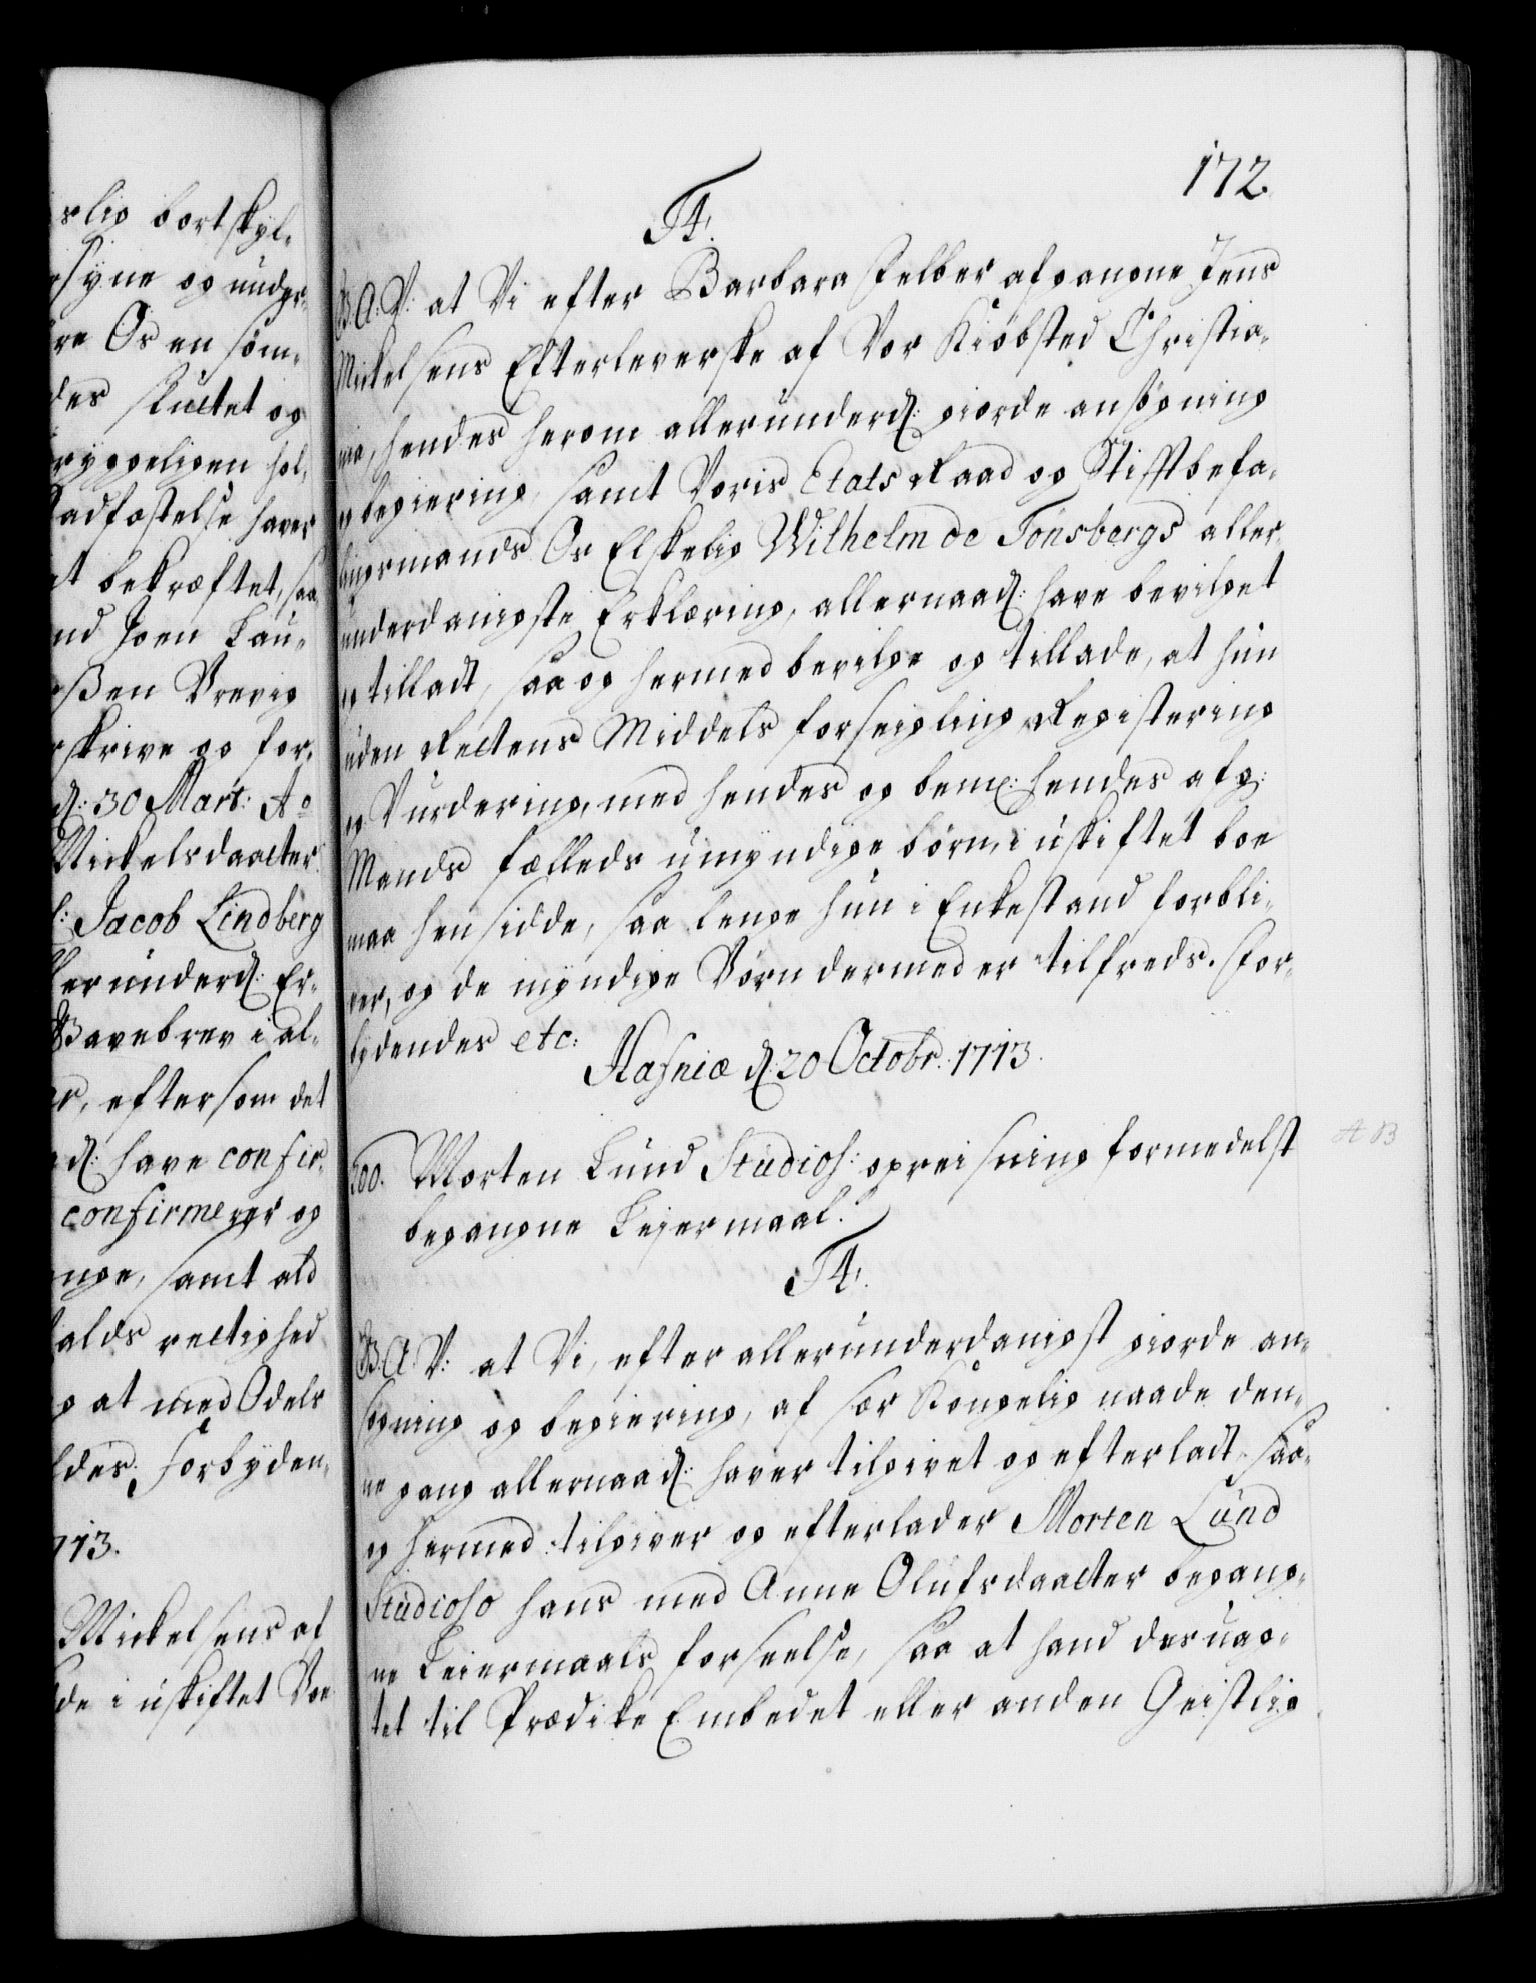 rlig bortskyl-
syne og under-
re Os en söm-
des sluttet og
ryggeligen hol-
Stadfæstelse haver
et bekræftet, saa
nd Joen Lau-
ßen Vrevig
skrive og for-
d: 30 Mart: Ao
Mickelsdaatter
l: Jacob Lindberg
lerunderd: Er-
Gavebrev i al-
r, eftersom det
d: have confir-
confirmerer og
nge, samt ald
falds rettighed
g at med Odels
ldes. Forbyden-
713.
Mickelsens af
de i uskiftet Boe
172.
F4.
G: A: V: at Vi efter Barbara Felber afgangne Jens
Mickelsens Efterleverske af Vor Kiøbsted Christia-
nia, hendes herom allerunderd: giorde ansøgning
og begiering, samt Voris Etats Raad og Stiftbefa-
lingsmands Os Elskelig Wilhelm de Tönsbergs aller-
underdanigste Erklæring, allernaad: have bevilget
og tilladt, saa og hermed bevilge og tillade, at hun
uden Rettens Middels forseigling Registering
og Vurdering, med hendes og bem: hendes afg:
Mands fælleds umyndige børn, i uskiftet boe
maa hensidde, saa lenge hun i Enkestand forbli-
ver, og de myndige Börn dermed er tilfreds. For-
bydendes etc:
Hafniæ d: 20 Octobr: 1713.
200. Morten Lund Studios: opreisning formedelst
begangne Leiermaal.
A B
F4.
G: A: V: at Vi, efter allerunderdanigst giorde an-
søgning og begiering, af sær Kongelig naade den-
ne gang allernaad: haver tilgivet og efterladt, saa-
og hermed tilgiver og efterlader Morten Lund
Studioso hans med Anne Olufsdaatter begang-
ne Leiermaals forseelse, saa at hand desuag-
tet til Prædike Embedet eller anden Geistlig